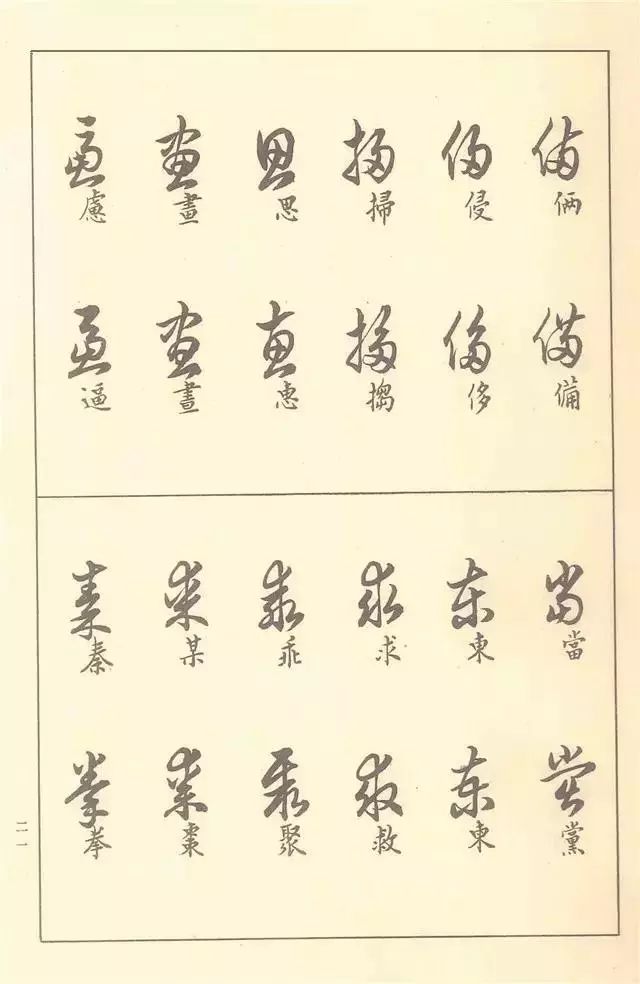 倆
備
侵
侈
掃
搊
思
惠
畫
晝
慮
逼
當
黨
東
東
求
救
乖
聚
某
棗
秦
拳
二一